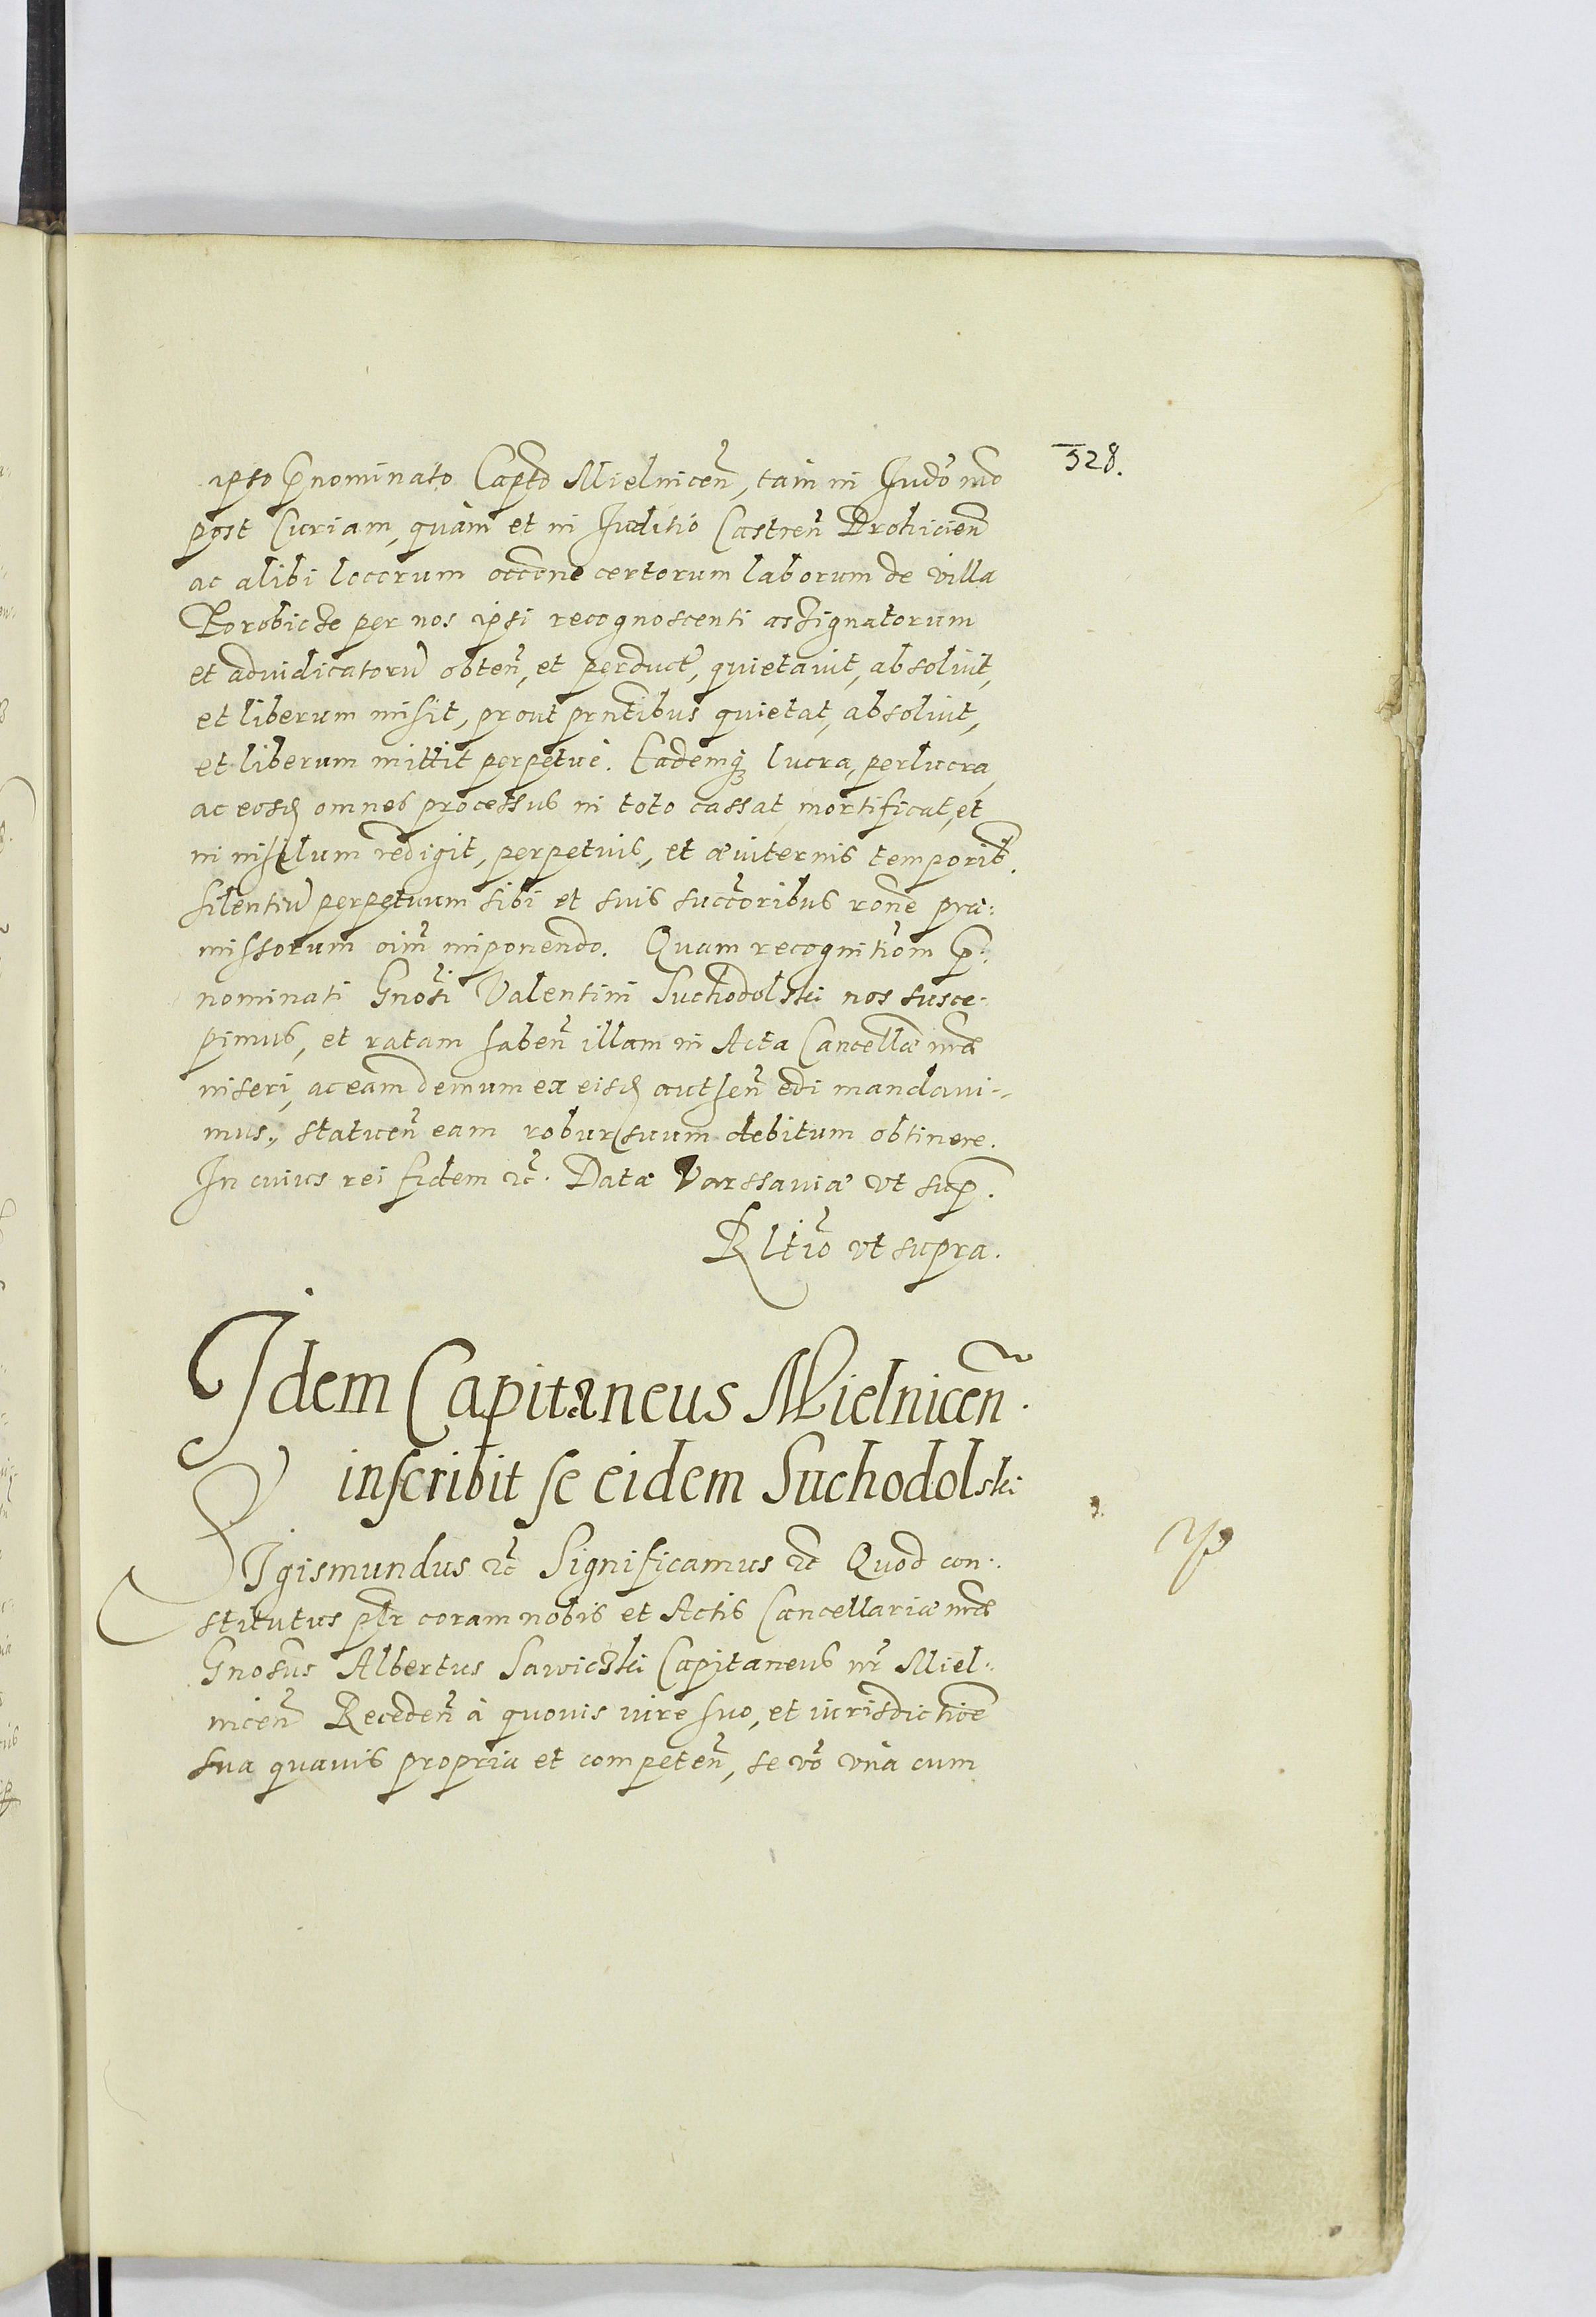 528.
ipso p̃nominato Capt̃o Mielnicen̄, tam in Judõ nr̃o
post Curiam, quàm et in Juditio Castren̄ Drohicien̄
ac alibi locorum occõne certorum laborum de villa
per nos ipsi recognoscenti assignatorum
et adiudicatorũ obten̄, et perduct̃, quietavit, absolvit,
et liberum misit, prout prñtibus quietat, absolvit,
et liberum mittit perpetuè. Eademq̃ lucra, perlucra,
ac eosd̃ omnes processus in toto cassat, mortificat, et
in nihilum redigit, perpetuis, et æviternis temporib̃.
silentiũ perpetuum sibi et suis succ̃oribus rõne præ:
missorum oim̃ imponendo. Quam recognitiõm p̃:
nominati Gnõsi Valentini Suchodolski nos susce:
pimus, et ratam haben̄ illam in Acta Cancellæ nr̃æ
inseri, ac eam demum ex eisd̃ authen̄ edi mandavi:
mus, statuen̄ eam robur suum debitum obtinere.
In cuius rei fidem ꝛc̃. Datæ Varssaviæ ut sup̃.
Rltiõ ut supra.
Idem Capitaneus Mielnicen̄.
inscribit se eidem Suchodolski
SIgismundus ꝛc̃ Significamus ꝛc̃ Quod con:
stitutus pl̃r coram nobis et Actis Cancellariæ nr̃æ
Gnosũs Albertus Sawiczki Capitaneus nr̃ Miel:
nicen̄ Receden̄ à quovis iure suo, et iurisdictiõe
sua quavis propria et competen̄, se võ unà cum